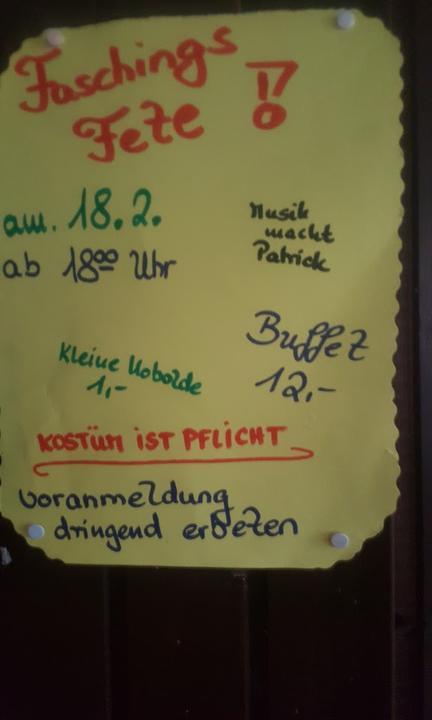 Faschings
Fete !
am. 18.2.
ab 18⁰⁰ Uhr
Musik
macht
Patrick
Buffet
12,-
Kleine Kobolde
1,-
KOSTÜM IST PFLICHT
Voranmeldung
dringend erbeten